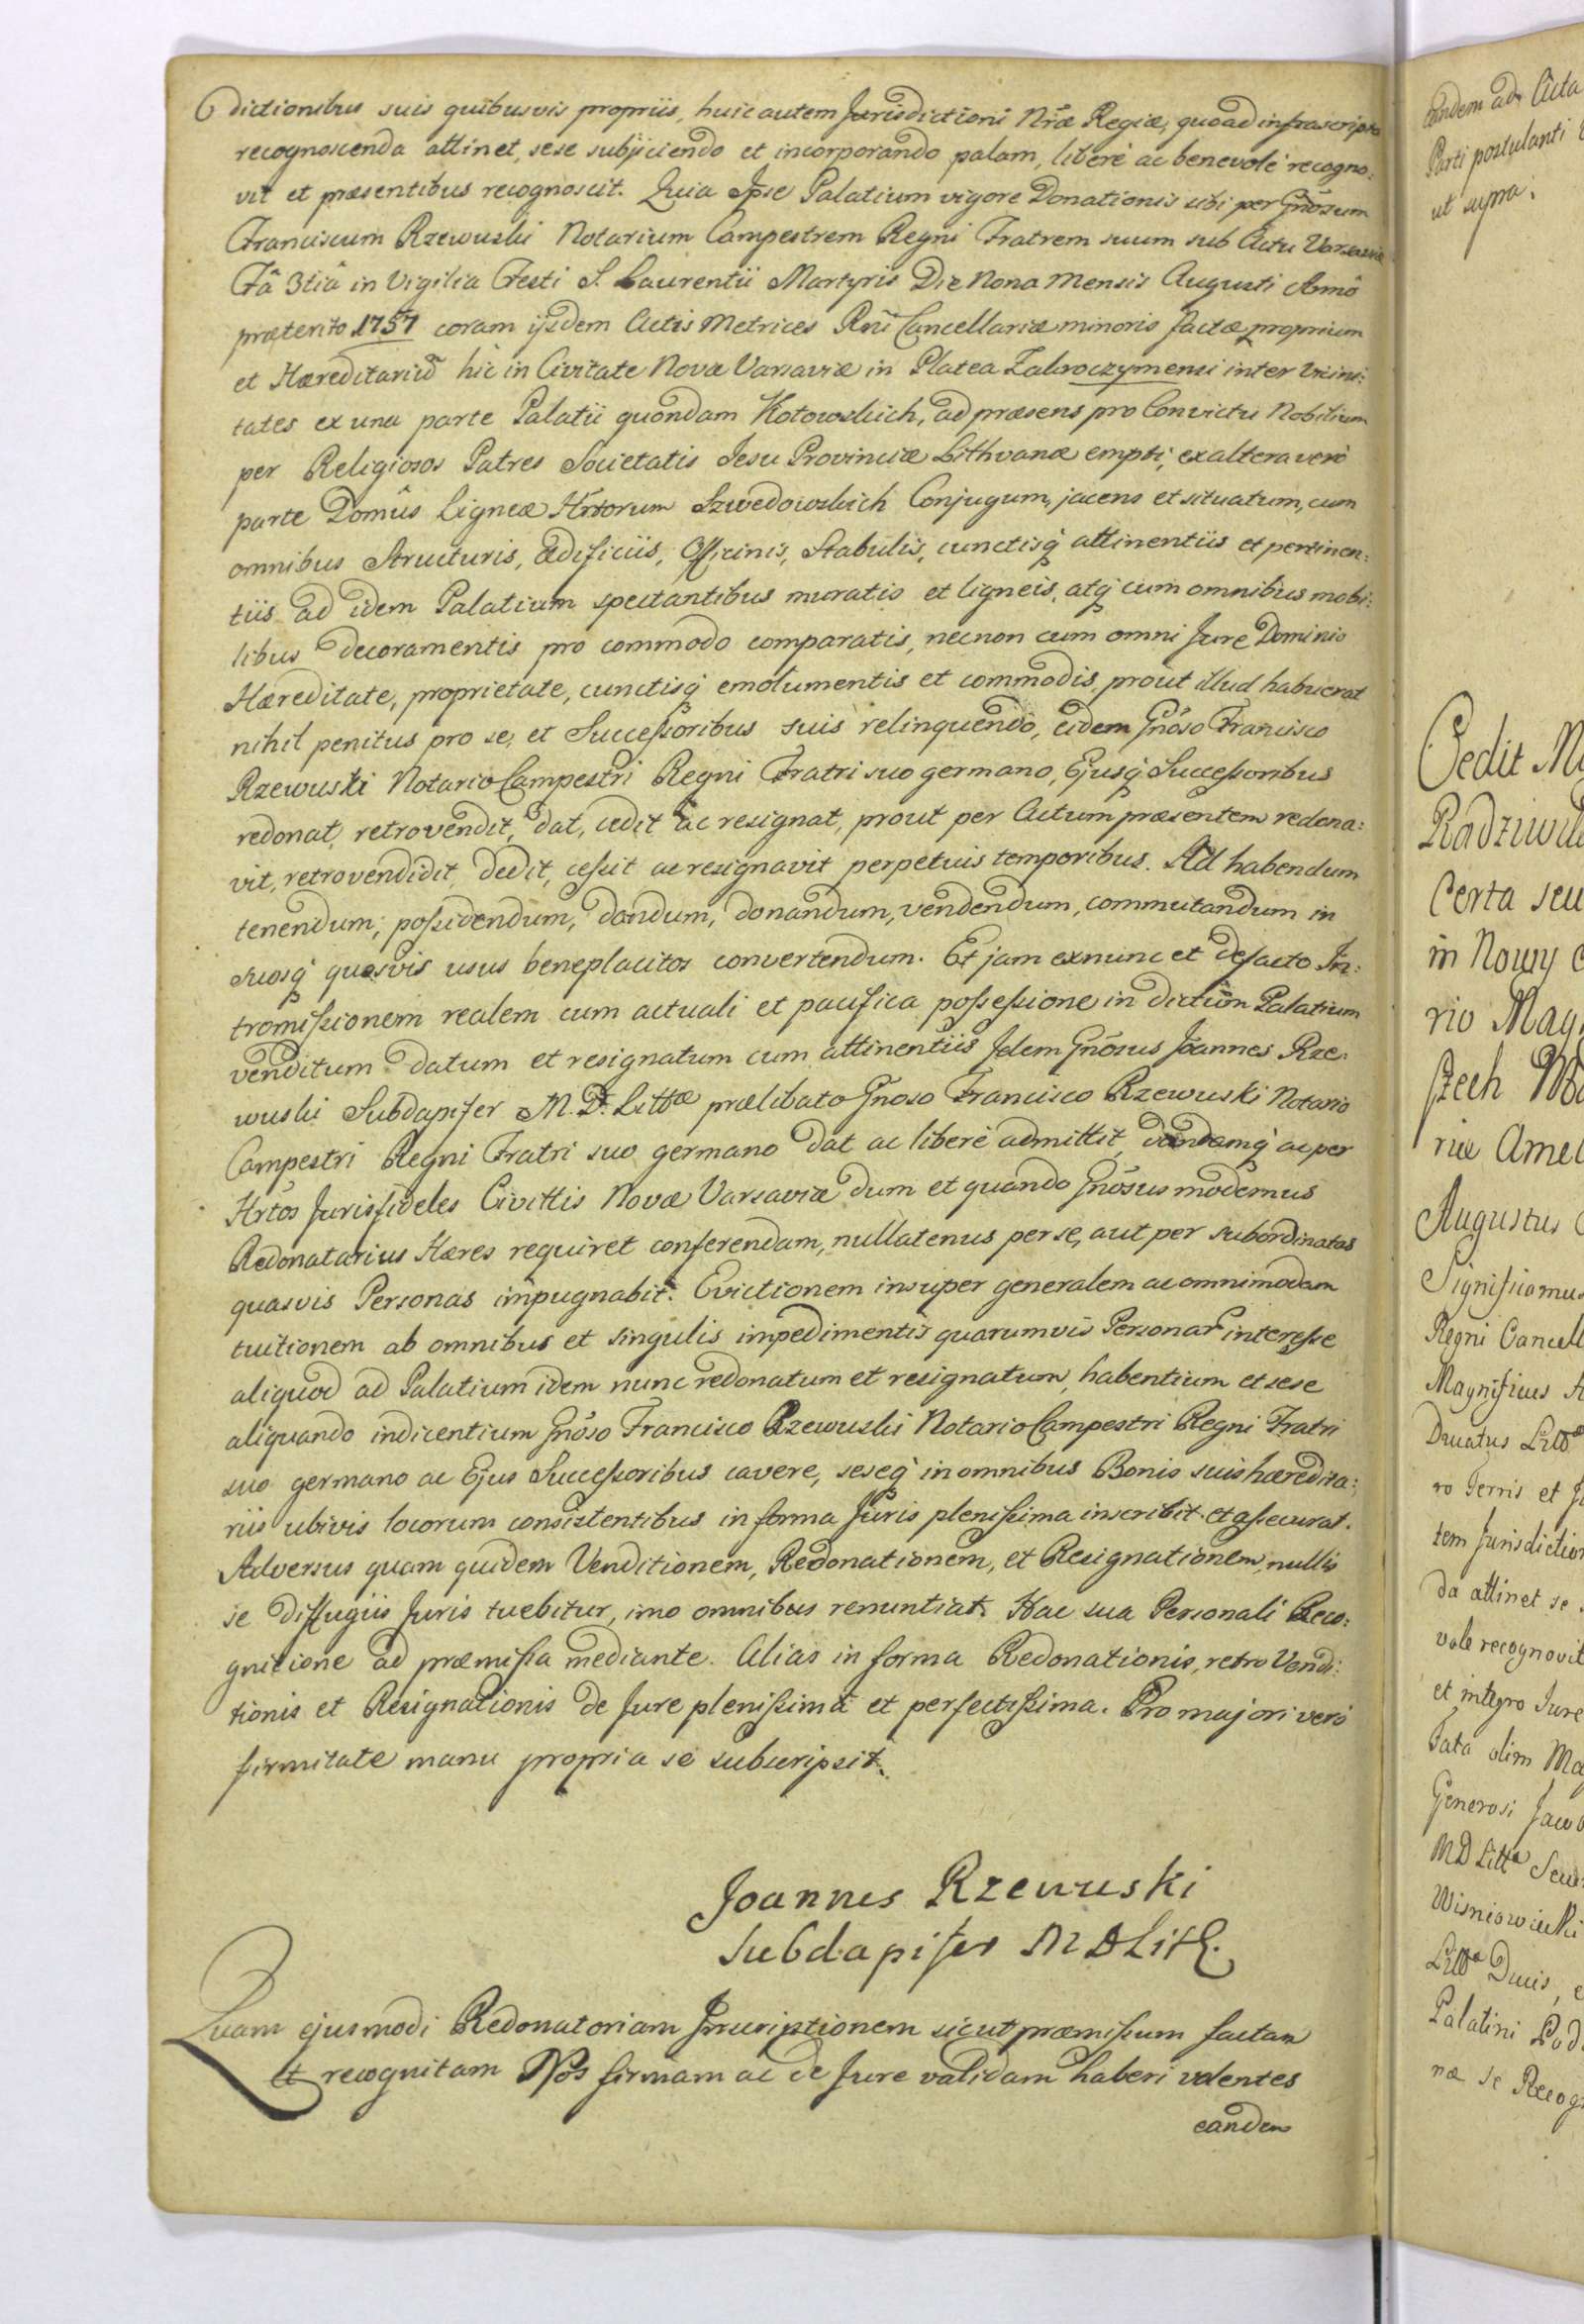 6 dictionibus suis quibusvis propriis, huic autem Jurisdictioni Nrae Regiae, quoad infrascripta
recognoscenda attinet, sese subjiciendo et incorporando palam, liberè ac benevolè recogno:
vit et praesentibus recognoscit. Quia Ipse Palatium vigore Donationis sibi per Gnōsum
Franciscum Rzewuski Notarium Campestrem Regni Fratrem suum sub Actu Varsaviae
Frâ 3tiâ in Vigilia Festi S. Laurentii Martyris Die Nona Mensis Augusti Annô
praeterito 1757 coram ijsdem Actis Metrices Rni Cancellariae minoris factae proprium
et Haereditariū hîc in Civitate Nova Varsaviae in Platea Zakroczymensi inter Vicini:
tates ex una parte Palatii quondam Kotowskich, ad praesens pro Convictu Nobilium
per Religiosos Patres Societatis Jesu Provinciae Lithvanae empti, ex altera verò
parte Domûs Ligneae Hrtorum Szwedowskich Conjugum, jacens et situatum, cum
omnibus Structuris, aedificiis, Officinis, Stabulis, cunctisq́ attinentiis et pertinen:
tiis ad idem Palatium spectantibus muratis et ligneis, atq́ cum omnibus mobi:
libus decoramentis pro commodo comparatis, necnon cum omni Jure Dominio
Haereditate, proprietate, cunctisq́ emolumentis et commodis, prout illud habuerat
nihil penitus pro se, et Successoribus suis relinquendo, eidem Gnōso Francisco
Rzewuski Notario Campestri Regni Fratri suo germano, Ejusq́ Successoribus
redonat, retrovendit, dat, cedit ac resignat, prout per Actum praesentem redona:
vit, retrovendidit, dedit, cessit ac resignavit perpetuis temporibus. Ad habendum
tenendum, possidendum, dandum, donandum, vendendum, commutandum in
suosq́ quosvis usus beneplacitos convertendum. Et jam exnunc et defacto In:
tromissionem realem cum actuali et pacifica possessione in dictum Palatium
venditum datum et resignatum cum attinentiis Idem Gnōsus Joannes Rze:
wuski Subdapifer M. D. Littae praelibato Gnōso Francisco Rzewuski Notario
Campestri Regni Fratri suo germano dat ac liberè admittit, dandamq́ ac per
Hrtōs Jurisfideles Civittis Novae Varsaviae dum et quando Gnōsus modernus
Redonatarius Haeres requiret conferendam, nullatenus per se, aut per subordinatas
quasvis Personas impugnabit. Evictionem insuper generalem ac omnimodam
tuitionem ab omnibus et singulis impedimentis quarumvis Personar interesse
aliquod ad Palatium idem nunc redonatum et resignatum, habentium et sese
aliquando indicentium Gnōso Francisco Rzewuski Notario Campestri Regni Fratri
suo germano ac Ejus Successoribus cavere, seseq́ in omnibus Bonis suis haeredita:
riis ubivis locorum consistentibus in forma Juris plenissima inscribit et assecurat.
Adversus quam quidem Venditionem, Redonationem, et Resignationem, nullis
se diffugiis Juris tuebitur, imo omnibus renuntiat. Hac sua Personali Reco:
gnitione ad praemissa mediante. Alias in forma Redonationis, retro Vendi:
tionis et Resignationis de Jure plenissima et perfectissima. Pro majori verò
firmitate manu propria se subscripsit.
Joannes Rzewuski
Subdapifer M D Lith.
Quam ejusmodi Redonatoriam Inscriptionem sicut praemissum factam
et recognitam Nos firmam ac de Jure validam haberi volentes
eandem
Eandem ad Acta
Parti postulanti
ut supra.
Cedit M
Radziwił
Certa seu
in Nowy
rio Mag
riae Amel
Augustus
Significamus
Regni Cancell
Magnificus
ro Terris et
tem Jurisdiction
da attinet se
vole recognovit
et integro Jure
olim Ma
Generosi Jacob
MD Litta
Wisniowiecki
Littae Ducis,
Palatini Pod
nae se Recog